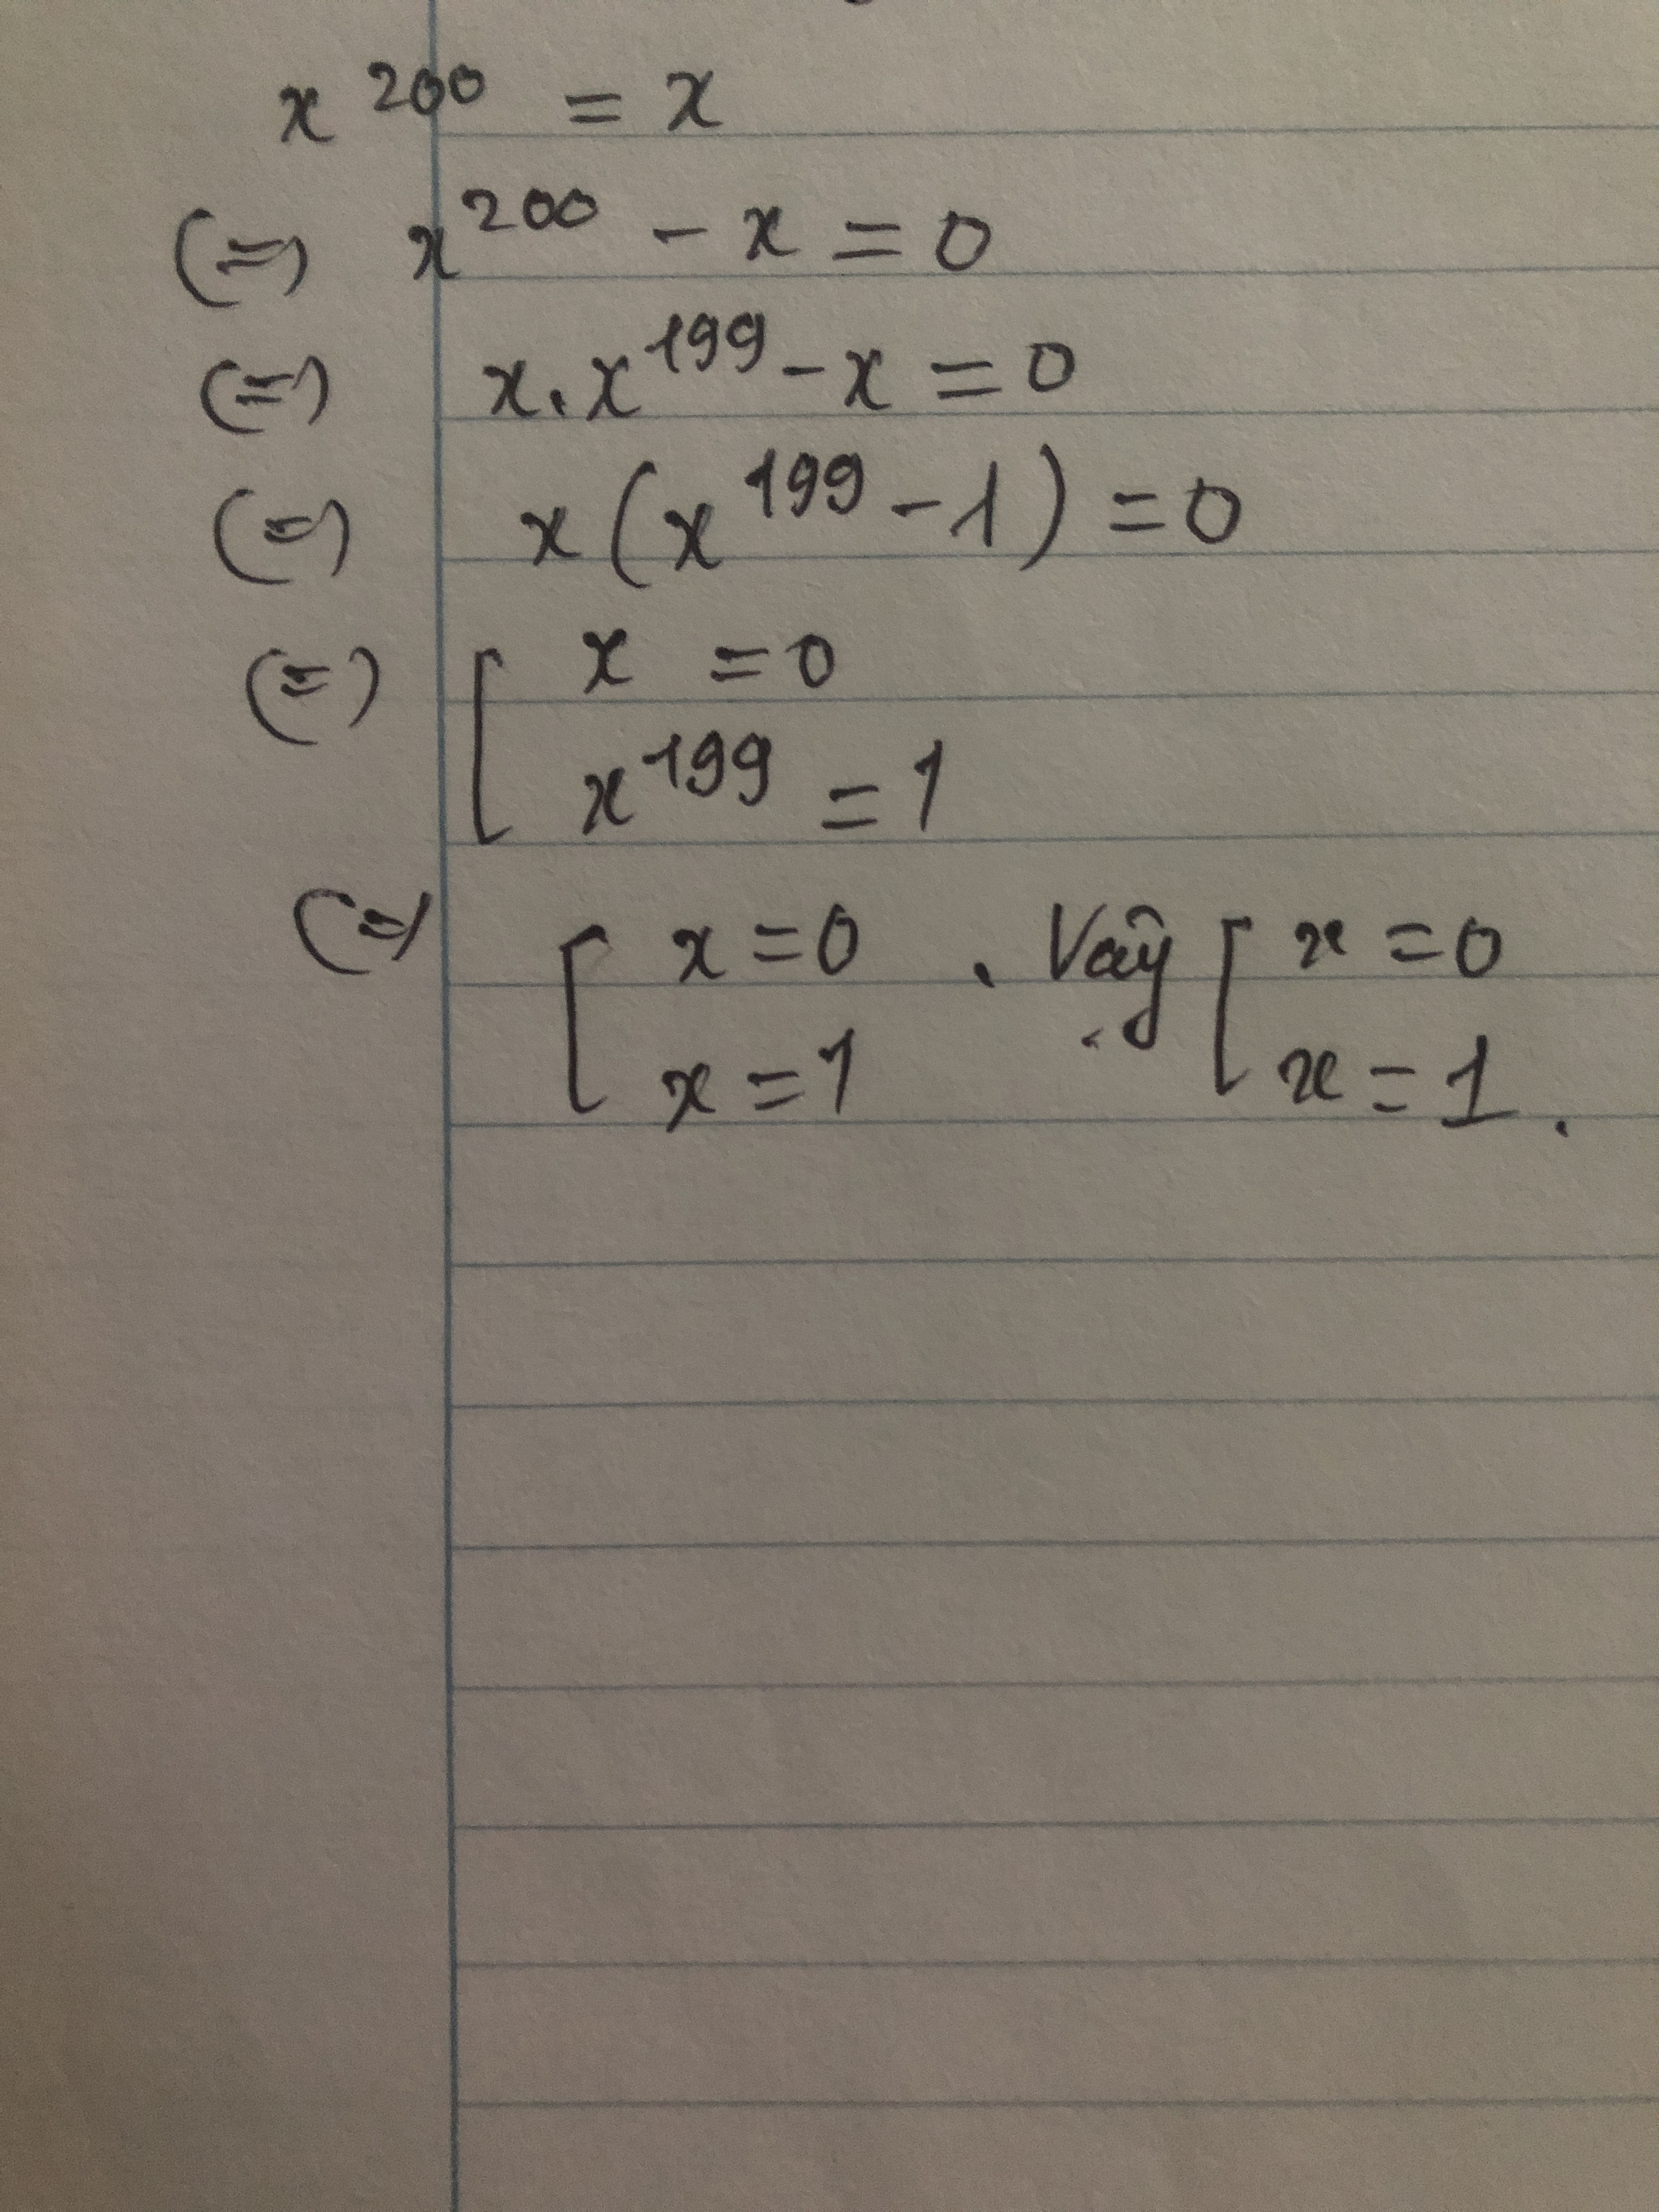 x^200 = x
(=) x^200 - x = 0
(=) x.x^199 - x = 0
(=) x(x^199 - 1) = 0
(=) [ x = 0
x^199 = 1
(=) [ x = 0 . Vậy [ x = 0
x = 1 x = 1.